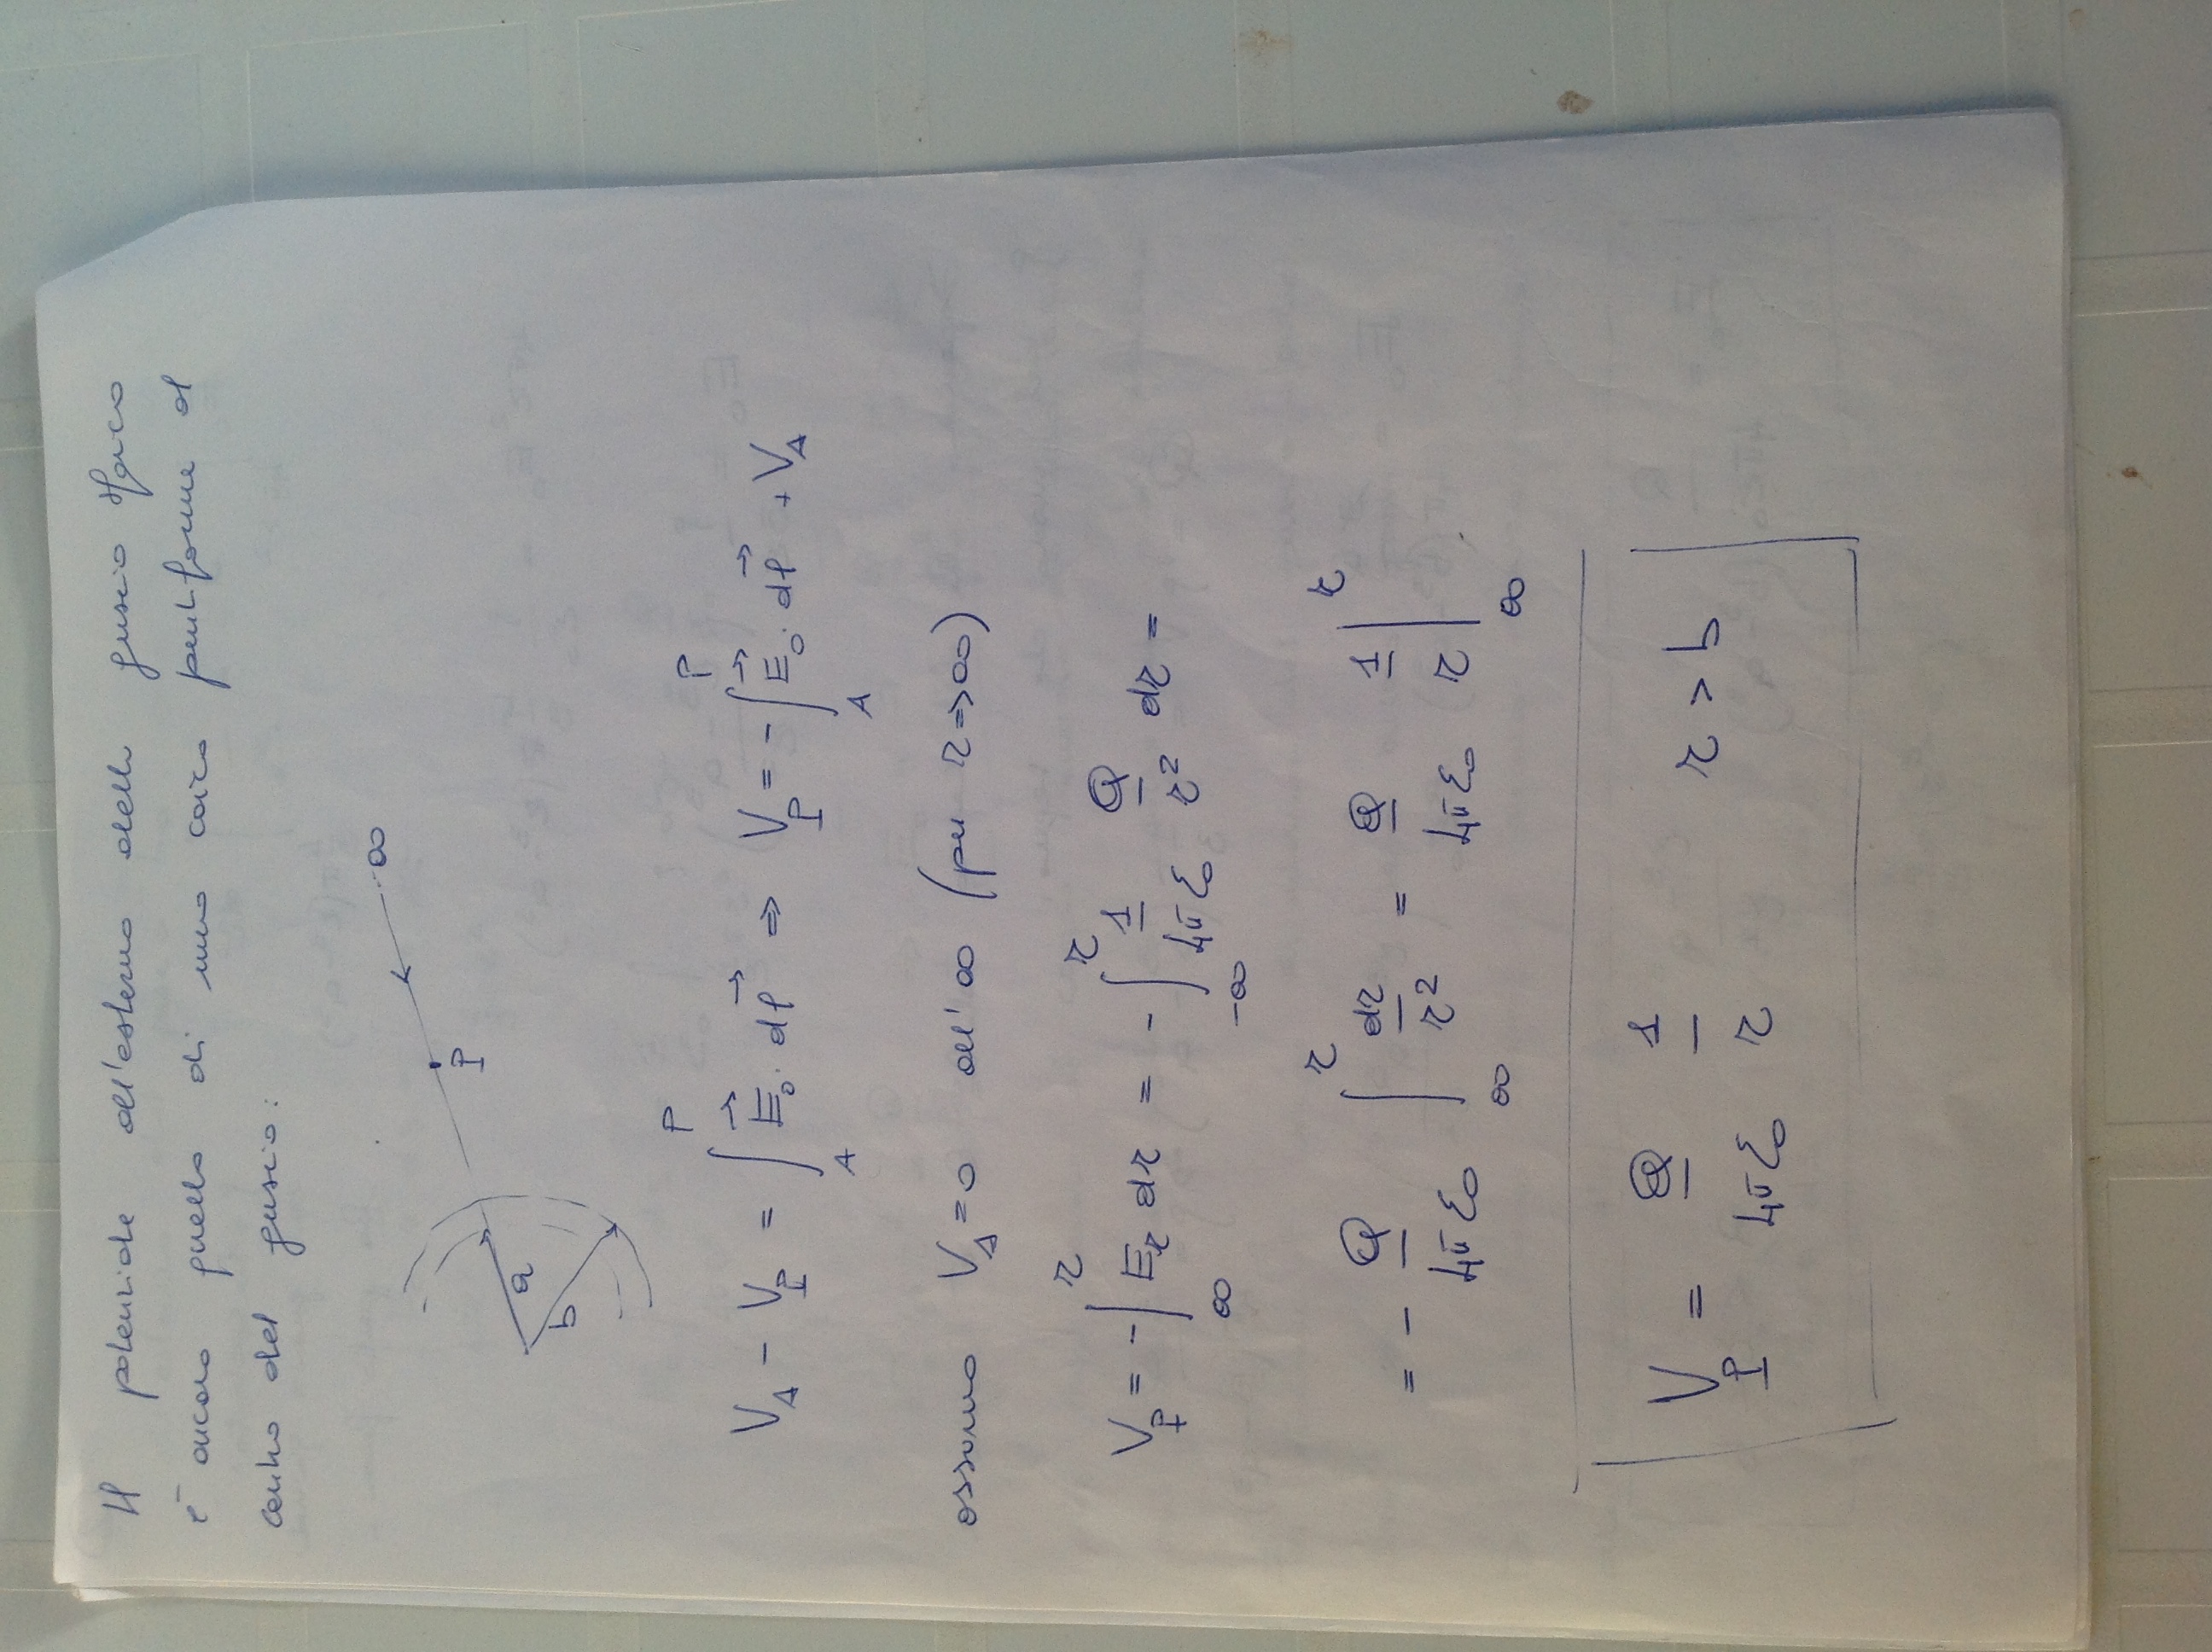 Il potenziale all'esterno dello guscio sferico
è ancora quello di una carica puntiforme al
centro del guscio:
∞
P
a
b
V_A - V_P = ∫_A^P E⃗_0 · dl⃗ ⇒ V_P = -∫_A^P E⃗_0 · dl⃗ + V_A
assumo V_A = 0 all'∞ (per r ⇒ ∞)
V_P = -∫_∞^r E_r dr = -∫_{-∞}^r 1/(4πε_0) Q/r² dr =
= - Q/(4πε_0) ∫_∞^r dr/r² = Q/(4πε_0) 1/r |_∞^r
V_P = Q/(4πε_0) 1/r r > b